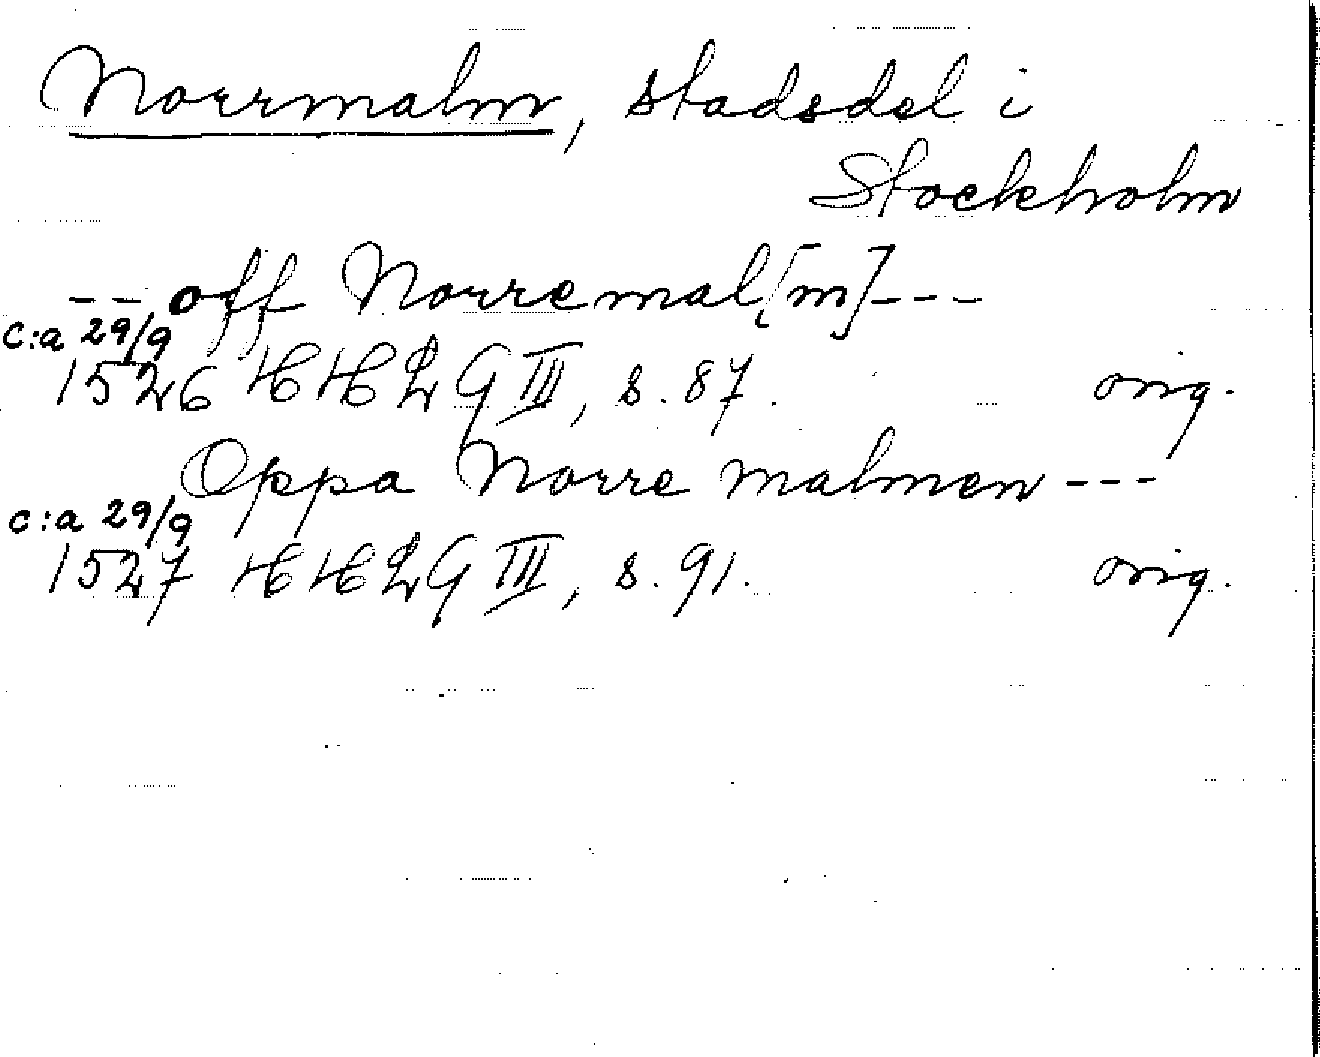 Norrmalm, stadsdel i
Stockholm
-- off Norremal[m]---
c:a 29/9
1526 HHLG III, s. 87. orig.
Oppa Norre malmen---
c:a 29/9
1527 HHLG III, s. 91. orig.